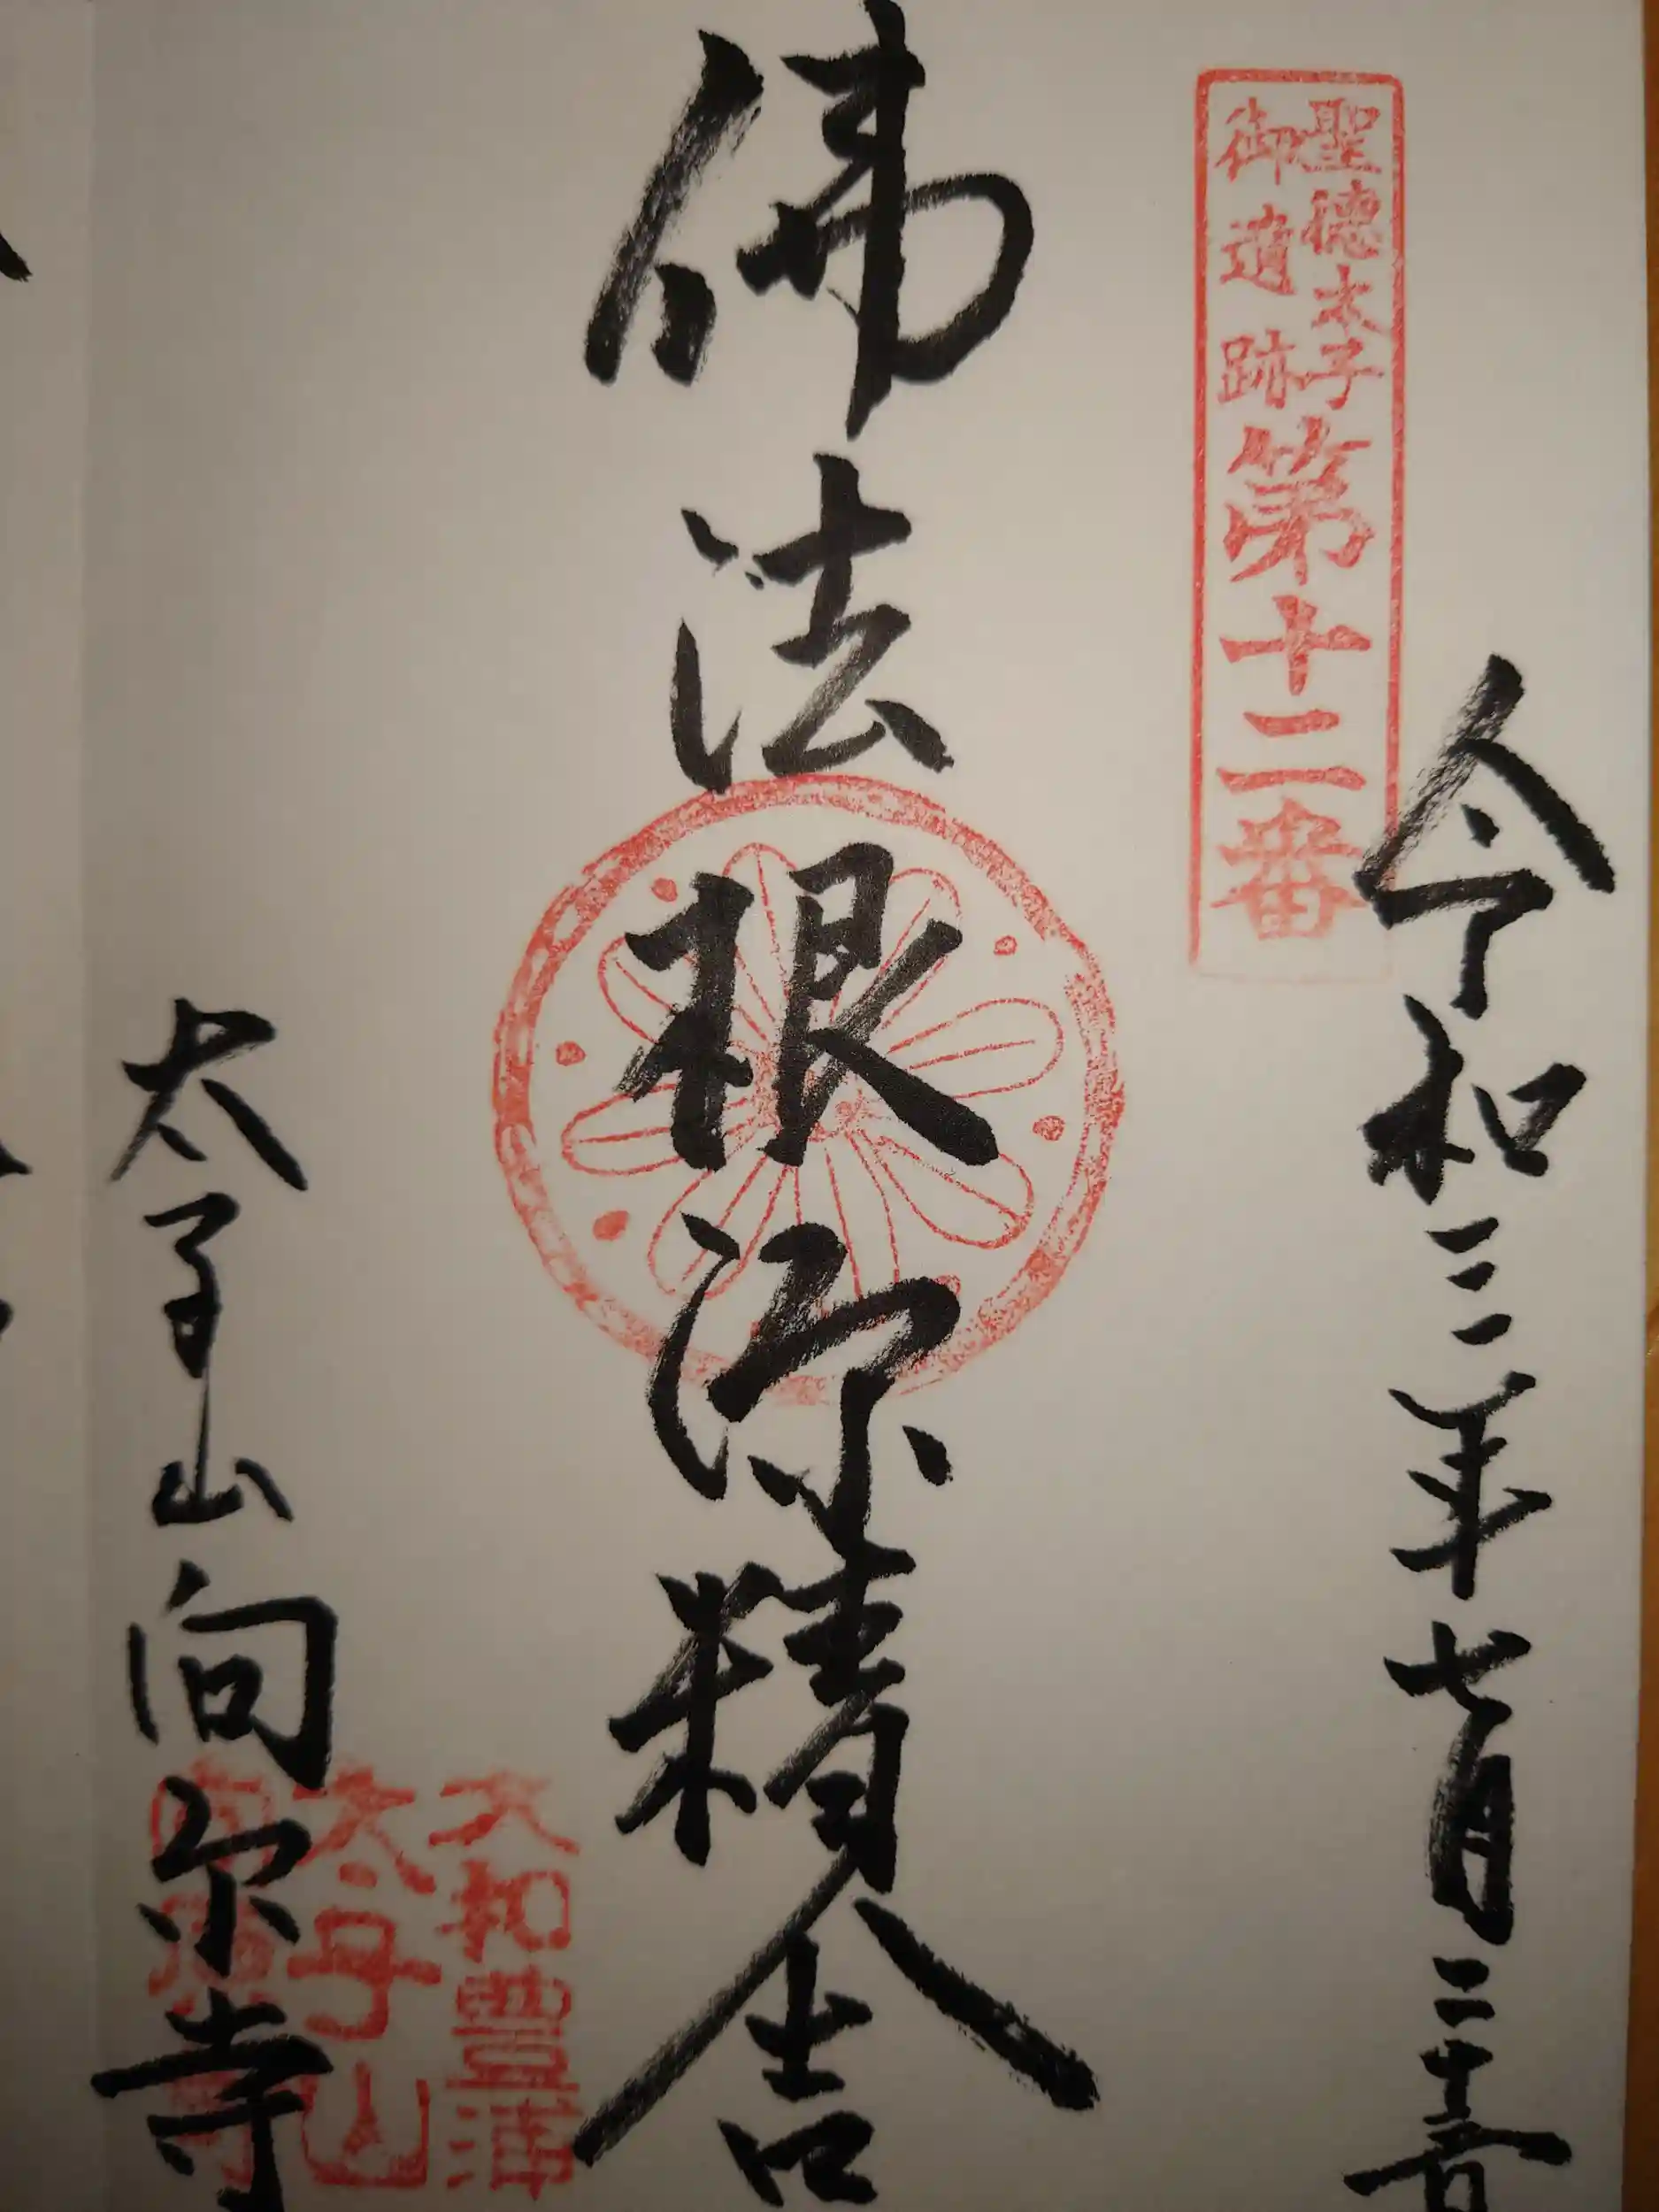 令和三年七月二十
聖徳太子
御遺跡
第十二番
佛法根源精舎
大和豊浦
太子山
太子山向原寺